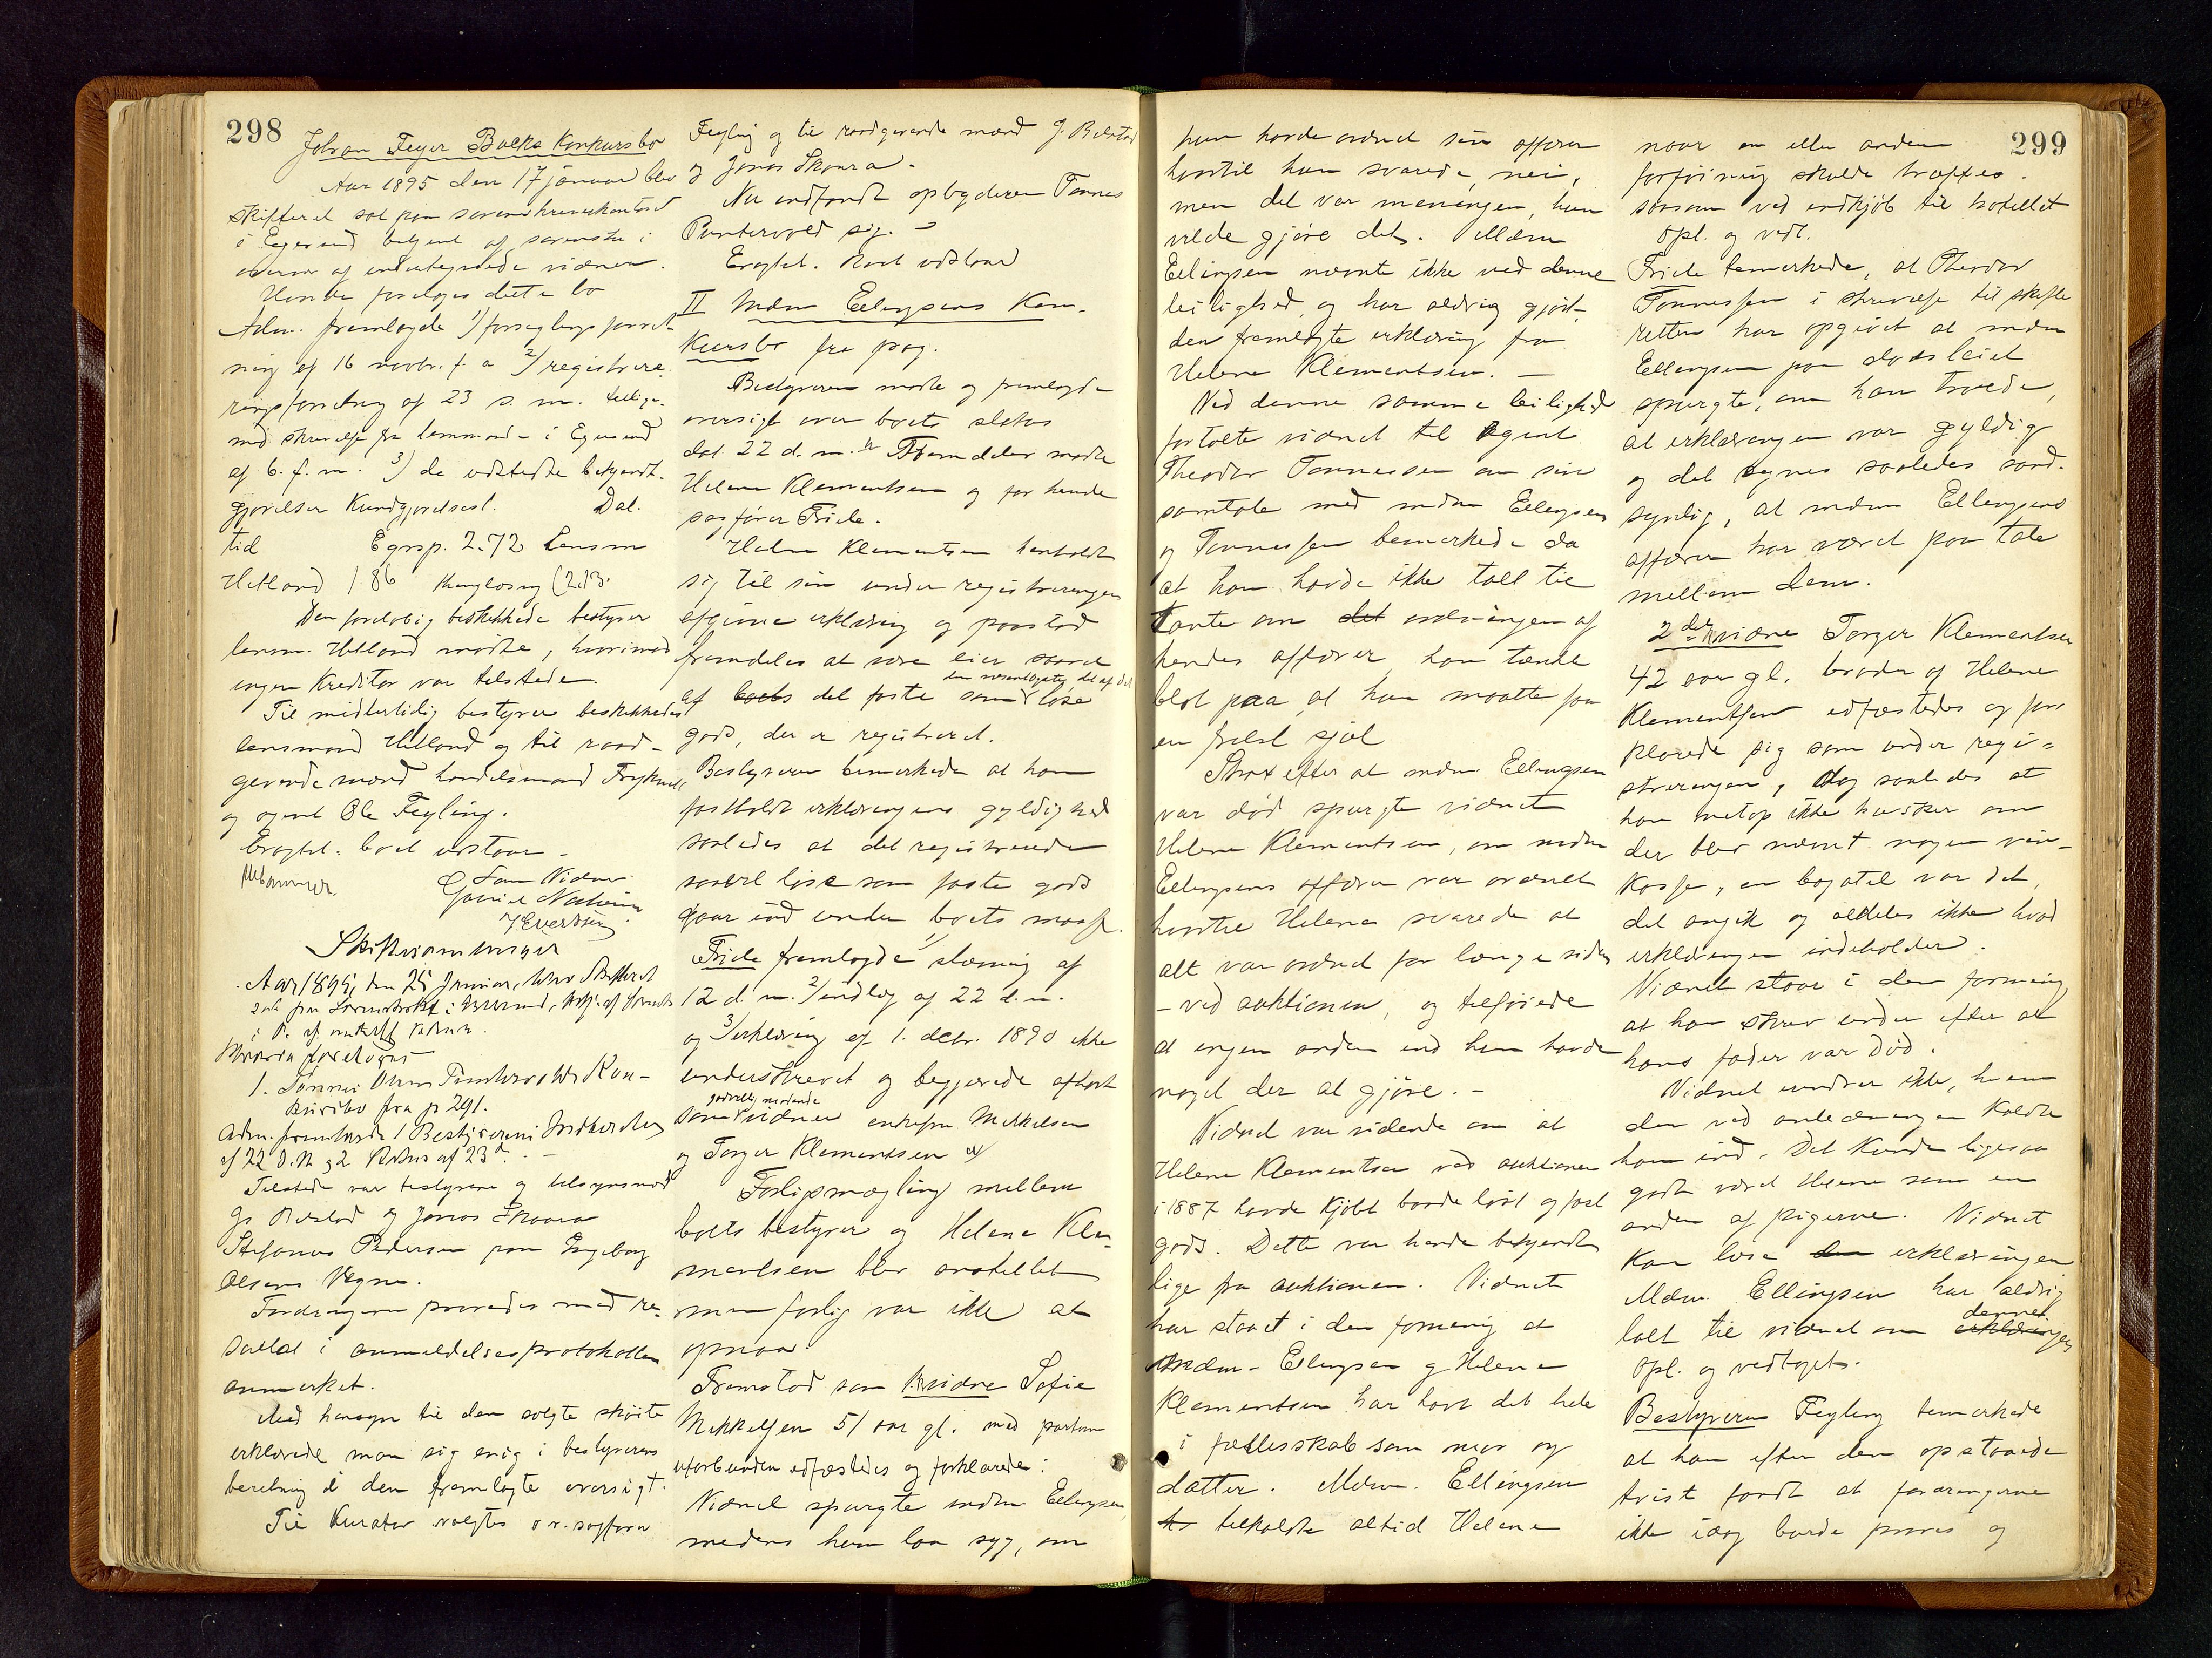 298
Johan Feyer Balks Konkursbo
Aar 1895 den 17 januar blev
skifteret sat paa sorenskriverkontoret
i Egersund betjent af sorenskr. i
overvær af undertegnede vidner.
Hvorda foretoges dette bo
Adm. fremlagde 1) forseglingsforret-
ning af 16 novbr. f. a 2) registrere-
ringsforretning af 23 s. m. tillige-
med skrivelse fra lensmand i Egersund
af 6. f. m. 3) de udstedte bekjendt-
gjørelser Kundgjørelsesl. Dal.
tid Egrsp. 2.72 Lensm
Hetland 1.86 Kunglosny (2.13.
Den foreløbig beskikkede bestyrer
lensm. Hetland mødte, hvorimod
ingen Kreditor var tilstede.
Til midlertidig bestyrer beskikkedes
lensmand Hetland og til raad-
givende mænd handelsmand
og agent Ole Feyling.
Eragtet: boet udstaar –
Som Vidner
Gabriel
J Evertsen
Skiftesamlinger
Aar 1895, den 25 Januar, blev Skifteret
sat paa Sorenskrkt. i Egersund, betj. af Sorenskr
i O. af undertegn Vidner.
Hvorda foretoges
1. Tønnes Olsens Puntervolds Kon-
kursbo fra p 291.
Adm. fremlagde 1 Bestyrerens Indberetn
af 22 d. M og 2 Status af 23 d. –
Tilstede var bestyreren og tilsynsmd
G. Bilstad og Jonas Skaara
Stefanus Pedersen paa Ingeborg
Olsens Vegne.
Fordringerne prøvedes med re-
sultat i anmeldelsesprotokollen
anmerket.
Med hensyn til den solgte skøite
erklærede man sig enig i bestyrerens
beretning i den fremlagte oversigt.
Til Kurator valgtes o.r.sagfører
Feyling og til raadgivende mænd G. Bilstad
og Jonas Skaara.
Nu indfandt opbyderen Tønnes
Puntervold sig. –
Eragtet. Boet udstaar
II Mdm Ellingsens Kon-
kursbo fra pag.
Bestyreren mødte og fremlagde
oversigt over boets status
dat. 22 d. m. Fremdeles mødte
Helene Klementsen og for hende
sagfører Friele.
Helene Klementsen henholdt
sig til sin under registreringen
afgivne erklæring og paastod
fremdeles at være eier saavel
af boets del faste som den væsentligste del af det løse
gods, der er registreret.
Bestyreren bemerkede at han
fastholdt erklæringens gyldighed
saaledes at det registrerede
saavel løse som faste gods
gaar ind under boets masse.
Friele fremlagde 1) stævning af
12 d. m. 2) indlæg af 22 d. m.
og 3) erklæring af 1. decbr. 1890 ikke
underskrevet og begjærede afhørt
som godvillig mødende vidner enkefru Mikkelsen
og Torger Klementsen
Forligsmægling mellem
boets bestyrer og Helene Kle-
mentsen blev anstillet
men forlig var ikke at
opnaa.
Fremstod som 1. vidne Sofie
Mikkelsen 51 aar gl. med parterne
uforbunden edfæstedes og forklarede:
Vidnet spurgte mdm Ellingsen
medens hun laa syg, om
299
hun havde ordnet sin affærer
hvortil hun svarede, nei,
men det var meningen, hun
vilde gjøre det. Mdm
Ellingsen nævnte ikke ved denne
leilighed, og har aldrig gjort
den fremlagte erklæring fra
Helene Klementsen. –
Ved denne samme leilighed
fortalte vidnet til Agent
Theodor Tønnessen om sin
samtale med mdm Ellingsen
og Tønnessen bemerkede da
at han havde ikke talt til
tante om det ordningen af
hendes affærer, han tænkte
blot paa, at hun maatte faa
en frelst sjæl
Strax efter at mdm Ellingsen
var død spurgte vidnet
Helene Klementsen, om mdm
Ellingsens affærer var ordnet
hvortil Helene svarede at
alt var ordnet for længe siden
– ved auktionen, og tilføiede
at ingen anden end hun havde
noget der at gjøre. –
Vidnet var vidende om at
Helene Klementsen ved auktionen
i 1887 havde kjøbt baade løst og fast
gods. Dette var hende bekjendt
lige fra auktionen. Vidnet
har staaet i den formening at
Mdm. Ellingsen og Helene
Klementsen har havt det hele
i fællesskab som mor og
datter. Mdm. Ellingsen
tilkaldte altid Helene
naar en eller anden
forføining skulde træffes.
saasom ved indkjøb til hotellet
Opl. og vedt.
Friele bemerkede, at Theodor
Tønnessen i skrivelse til skifte
retten har opgivet at mdm
Ellingsen paa dødsleiet
spurgte, om han troede,
at erklæringen var gyldig
og det synes saaledes sand-
synlig, at mdm Ellingsens
affærer har været paa tale
mellem dem.
2det vidne Torger Klementsen
42 aar gl. broder af Helene
Klementsen edfæstedes og for-
klarede sig som under regi-
streringen, dog saaledes at
han netop ikke husker om
der blev nævnt nogen vin-
kasse, en bagatel var det,
det angik og aldeles ikke hvad
erklæringen indeholder.
Vidnet staar i den formening,
at han skrev under efter at
hans fader var død.
Vidnet mindes ikke, hvem
der ved anledningen kaldte
ham ind. Det kunde ligesaa
godt været Helene som en
anden af pigerne. Vidnet
kan læse den erklæringen
Mdm. Ellingsen har aldrig
talt til vidnet om denne erklæringen
Opl. og vedtaget.
Bestyreren Feyling bemerkede
at han efter den opstaaede
tvist fandt at fordringerne
ikke idag burde prøves og